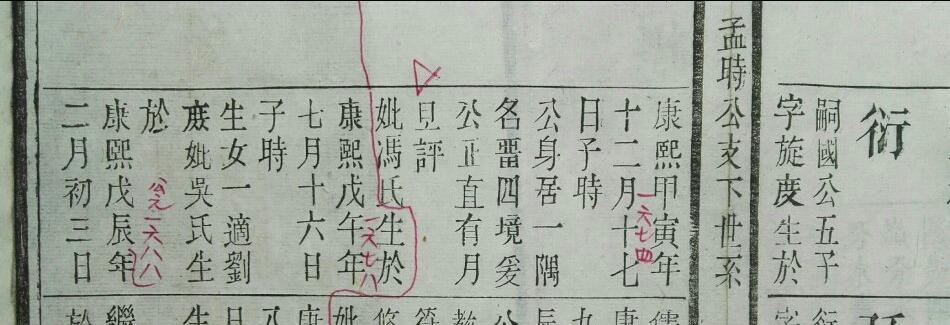 衍
嗣國公五子
字旋度生於
孟時公支下世系
康熙甲寅年
一六七四
十二月十七
日子時
公身居一隅
名畱四境爰
公正直有月
旦評
妣馮氏生於
康熙戊午年
一六七八
七月十六日
子時
生女一適劉
庶妣吳氏生
於
公元一六八八
康熙戊辰年
二月初三日